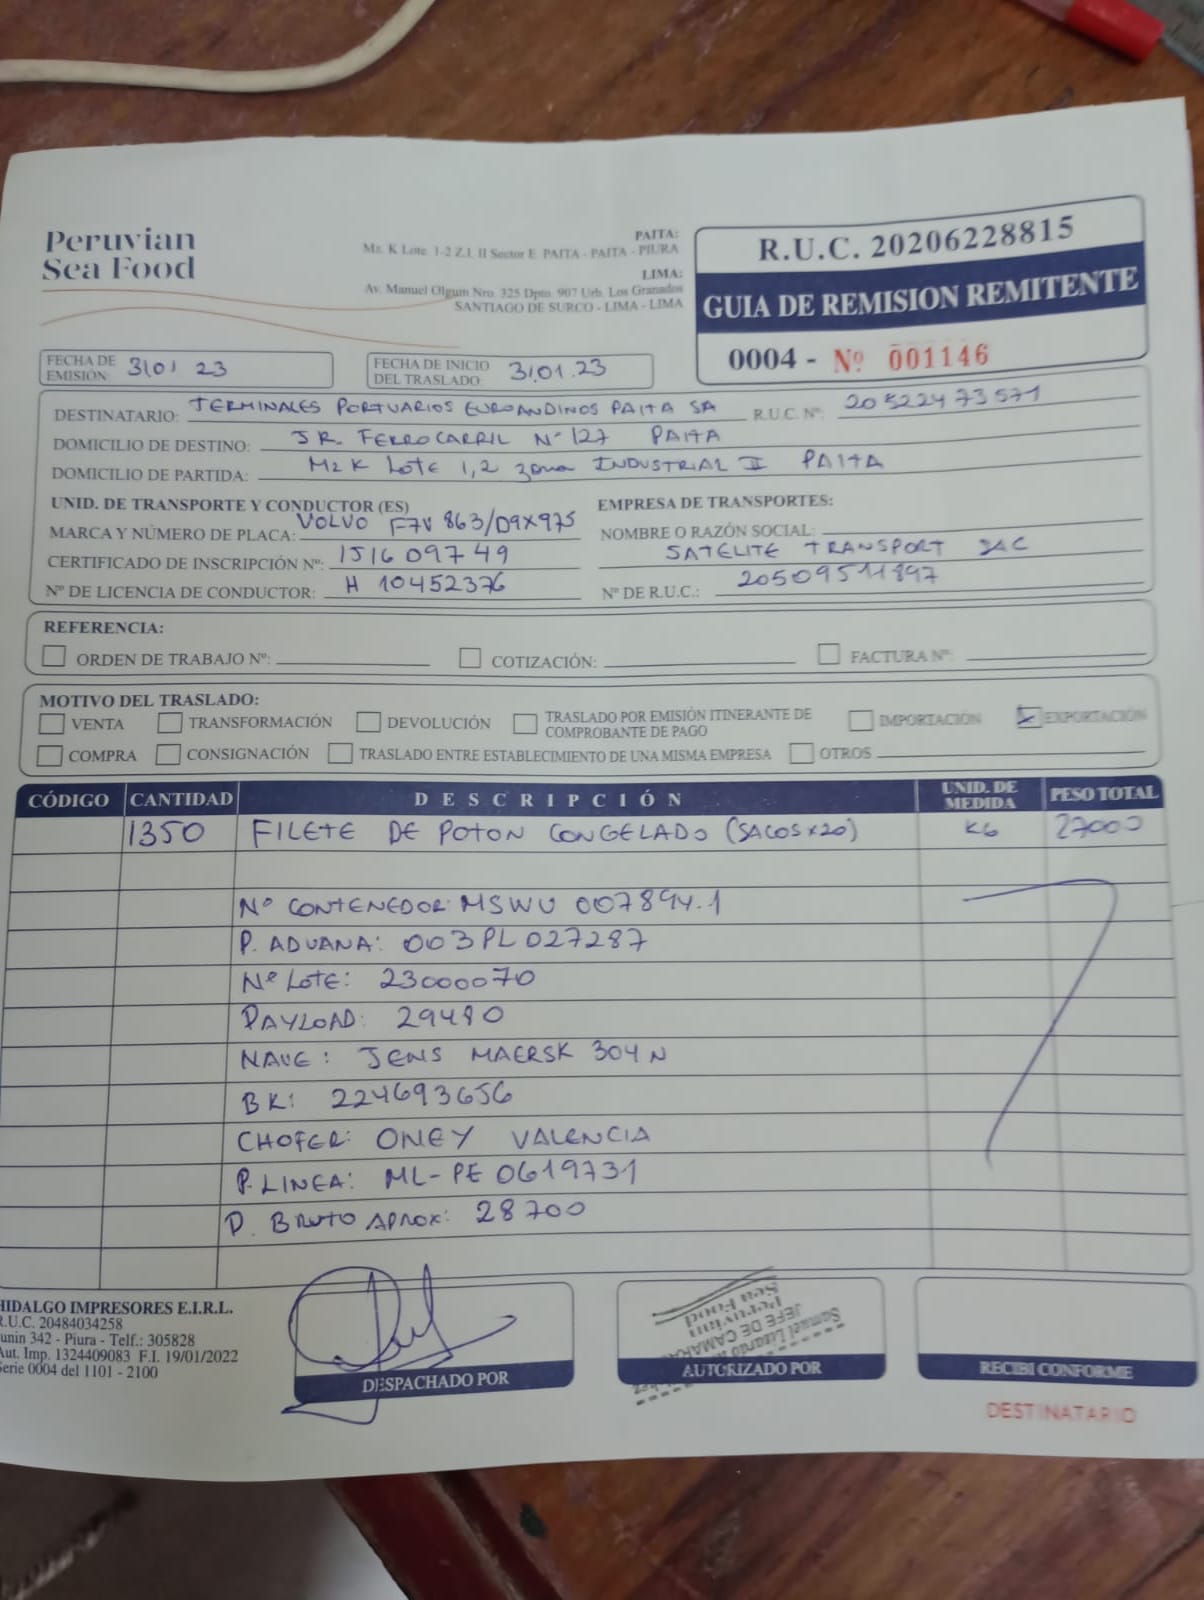 Peruvian
Sea Food
PAITA:
Mz. K Lote. 1-2 Z.I. II Sector E PAITA - PAITA - PIURA
LIMA:
Av. Manuel Olguin Nro. 325 Dpto. 907 Urb. Los Granados
SANTIAGO DE SURCO - LIMA - LIMA
R.U.C. 20206228815
GUIA DE REMISION REMITENTE
0004 - Nº 001146
FECHA DE EMISIÓN: 31 01 23
FECHA DE INICIO DEL TRASLADO: 31.01.23
DESTINATARIO: TERMINALES PORTUARIOS EUROANDINOS PAITA SA R.U.C. Nº: 20522473571
DOMICILIO DE DESTINO: JR. FERROCARRIL Nº 127 PAITA
DOMICILIO DE PARTIDA: Mz K Lote 1,2 zona INDUSTRIAL II PAITA
UNID. DE TRANSPORTE Y CONDUCTOR (ES)
MARCA Y NÚMERO DE PLACA: VOLVO F7V 863/D9X975
CERTIFICADO DE INSCRIPCIÓN Nº: 151609749
Nº DE LICENCIA DE CONDUCTOR: H 10452376
EMPRESA DE TRANSPORTES:
NOMBRE O RAZÓN SOCIAL:
SATELITE TRANSPORT SAC
Nº DE R.U.C.: 20509511897
REFERENCIA:
ORDEN DE TRABAJO Nº: COTIZACIÓN: FACTURA Nº:
MOTIVO DEL TRASLADO:
VENTA TRANSFORMACIÓN DEVOLUCIÓN TRASLADO POR EMISIÓN ITINERANTE DE COMPROBANTE DE PAGO IMPORTACIÓN EXPORTACIÓN
COMPRA CONSIGNACIÓN TRASLADO ENTRE ESTABLECIMIENTO DE UNA MISMA EMPRESA OTROS
CÓDIGO CANTIDAD DESCRIPCIÓN UNID. DE MEDIDA PESO TOTAL
1350 FILETE DE POTON CONGELADO (SACOS x 20) KG 27000
Nº CONTENEDOR: MSWU 007894.1
P. ADUANA: 003PL027287
Nº LOTE: 23000070
PAYLOAD: 29480
NAVE: JENS MAERSK 304N
BK: 224693656
CHOFER: ONEY VALENCIA
P. LINEA: ML-PE 0619731
P. BRUTO APROX: 28700
HIDALGO IMPRESORES E.I.R.L.
R.U.C. 20484034258
Junin 342 - Piura - Telf.: 305828
Aut. Imp. 1324409083 F.I. 19/01/2022
Serie 0004 del 1101 - 2100
DESPACHADO POR
Samuel
JEFE DE CAMARA
Peruvian
Sea Food
AUTORIZADO POR
RECIBI CONFORME
DESTINATARIO